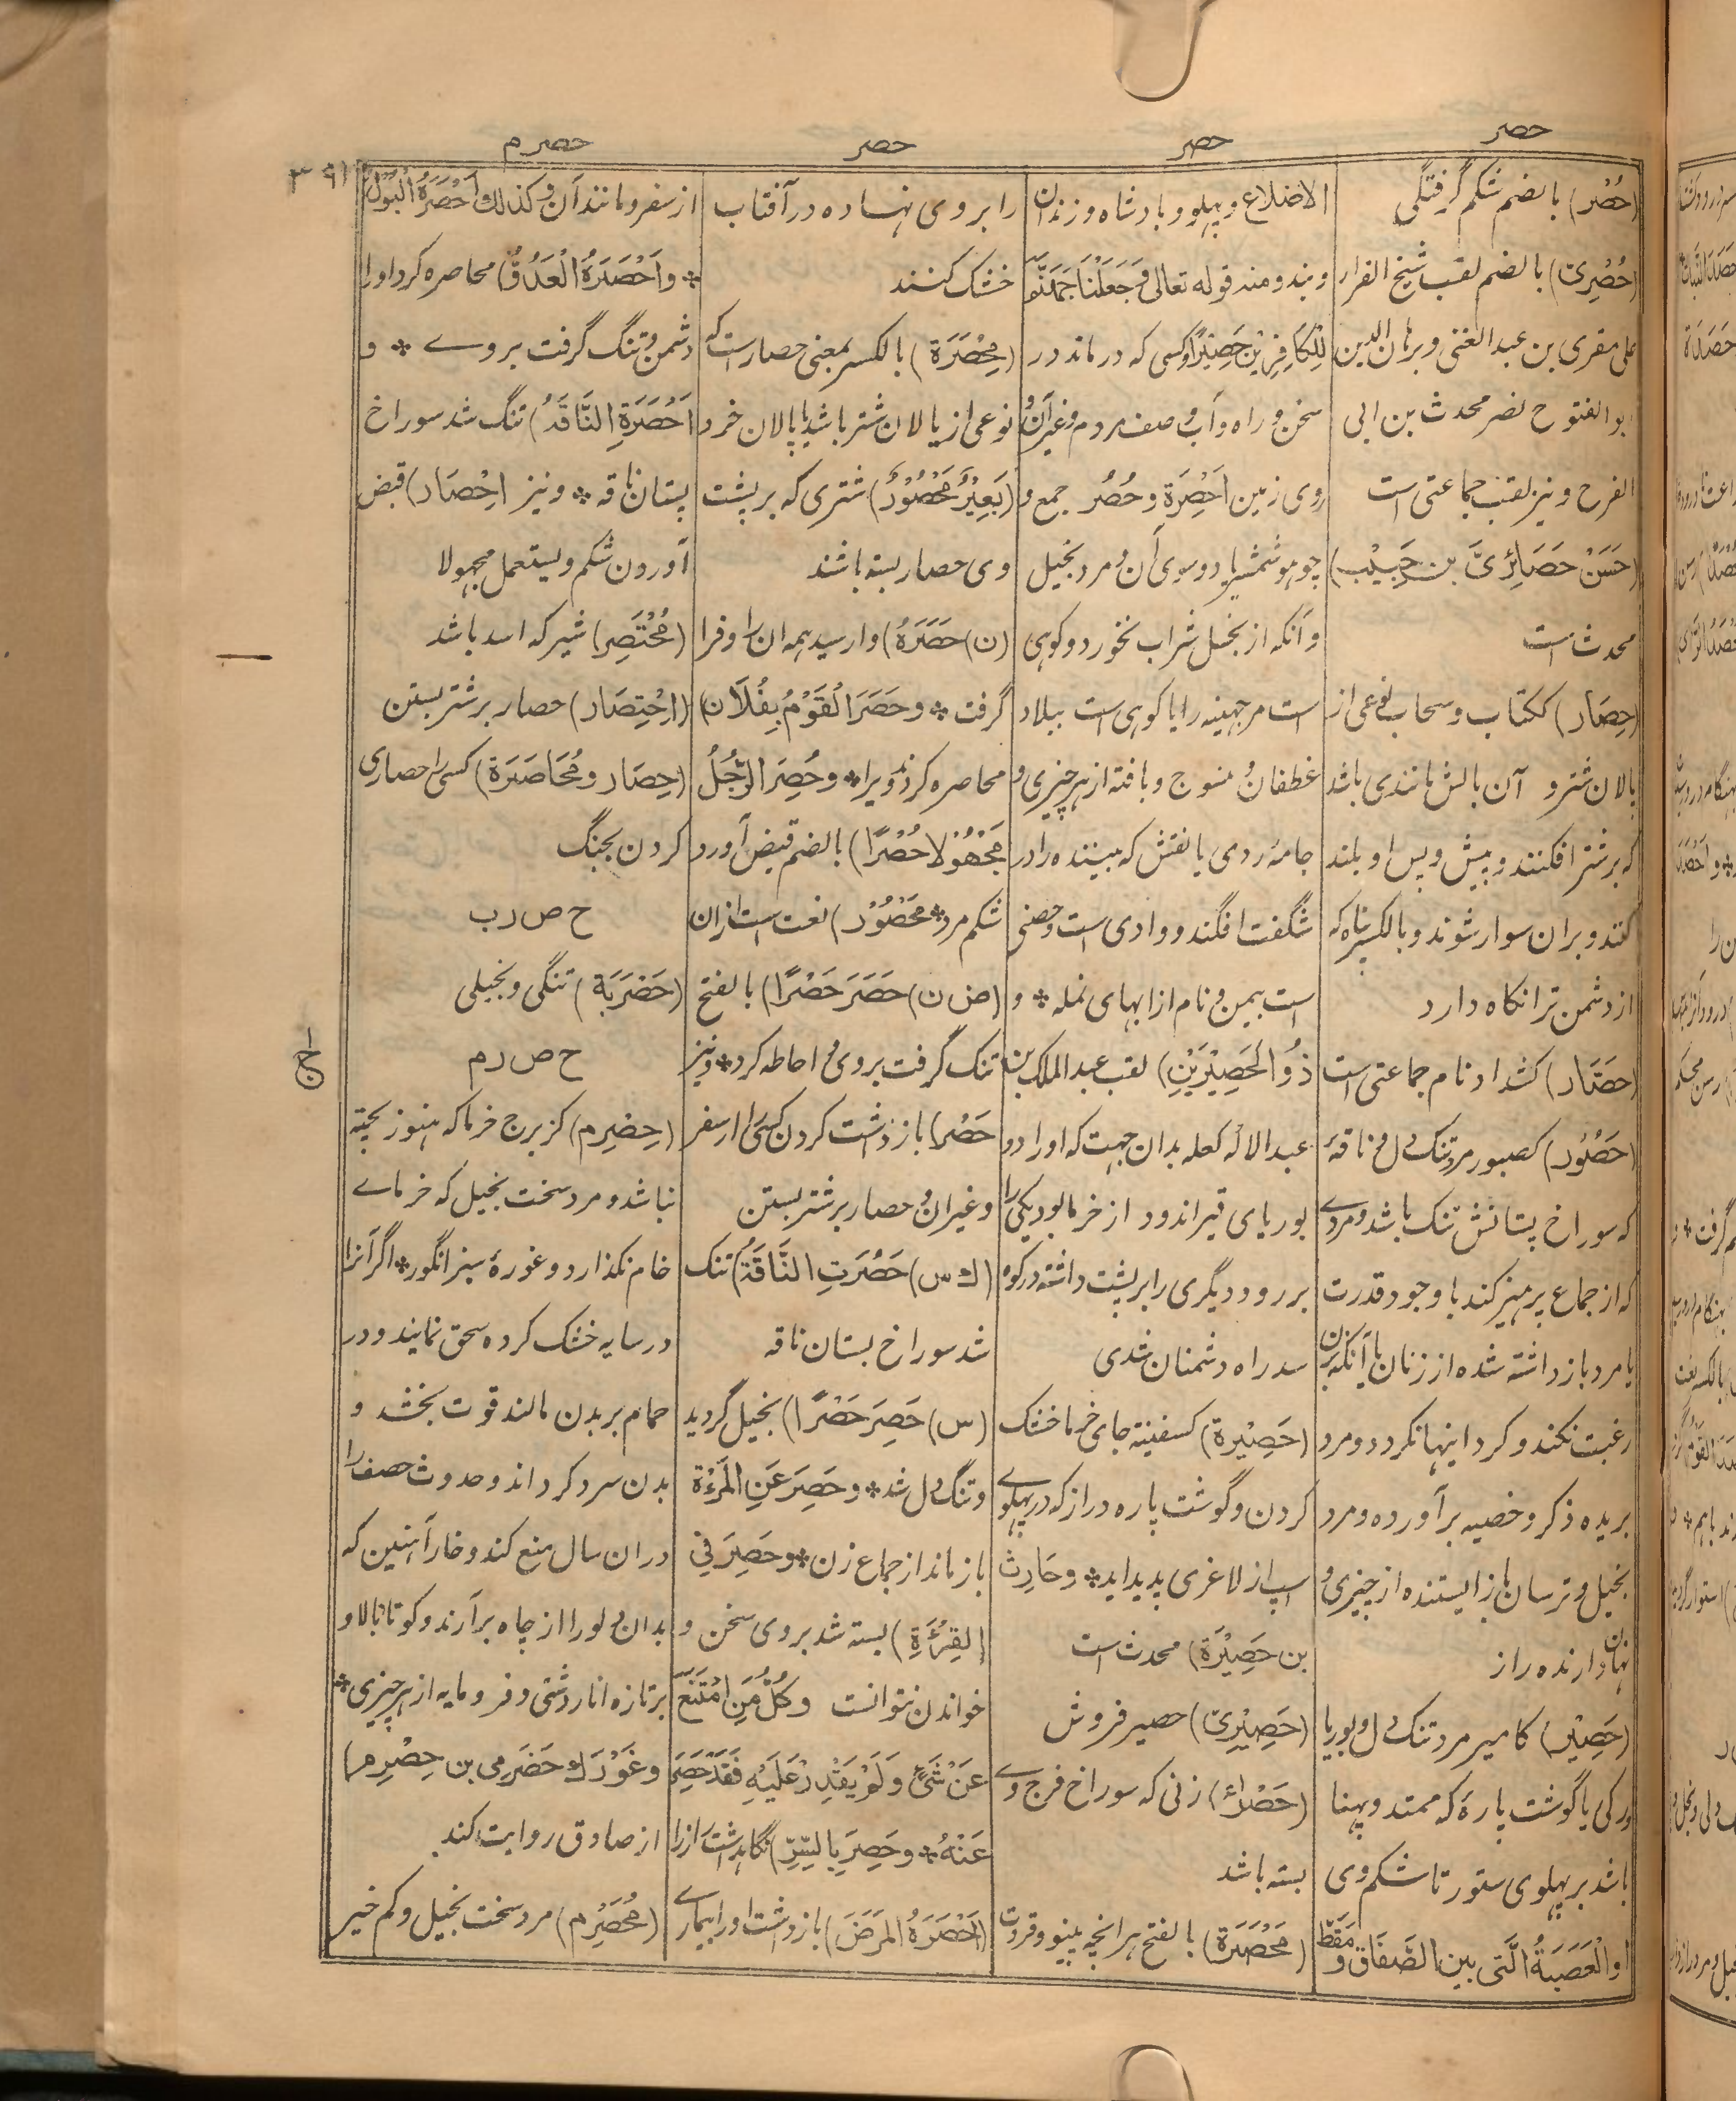 حصر
حصر
حصر
حصرم
۳۹۱
(حُصْر) بالضم شکم گرفتگی
(حُصْرِیّ) بالضم لقب شیخ القرار
علی مقری بن عبد الغنی و برهان الدین
ابو الفتوح نصر محدث بن ابی
الفرح و نیز لقب جماعتی است
(حَسَنْ حَصَائِرِیَّ بن حَبِیْب)
محدث است
(حِصَار) ککتاب و سحاب نوعی از
پالان شتر و آن بالش مانندی باشد
که بر شتر افکنند و پیش و پس او بلند
کنند و بران سوار شوند و بالکسر پناه که
از دشمن ترا نگاه دارد
(حصَّار) کشداد نام جماعتی است
(حَصُوْر) کصبور مرد تنگ دل و ناقهٔ
که سوراخ پستانش تنک باشد و مردے
که از جماع پرهیز کند با وجود قدرت
یا مرد باز داشته شده از زنان یا آنکه بزن
رغبت نکند و گرد اینها نگردد و مرد
بریده ذکر و خصیه برآورده و مرد
بخیل و ترسان باز ایستنده از چیزی و
نهان دارنده راز
(حَصِیْر) کامیر مرد تنک دل و بوریا
ورگی یا گوشت پارهٔ که ممتد و پهنا
باشد بر پهلوی ستور تا شکم وی
اوالْعَصَبَةُ الَّتی بین الصِّفَاق وَ مَقَطِّ
الاضلاع و پهلو و بادشاه و زندان
و بند و منه قوله تعالی وَجَعَلْنَا جَهَنَّمَ
لِلْکَافِرِیْنَ حَصِیْرًا و کسی که درماند در
سخن و راه و آب و صف مردم و غیر آن و
روی زمین اَحْصِرَة و حُصُر جمع و
جوهر شمشیر یا دوسوی آن و مرد بخیل
و آنکه از بخل شراب نخورد و کوهی
است مر جهینه را یا کوهی است ببلاد
غطفان و منسوج و بافته از هر چیزی و
جامهٔ ردی یا نقش که بیننده را در
شگفت افگند و وادی است و حصنی
است بیمن و نام از ابهای نمله * و
ذُوالحَصِیْرَیْنِ) لقب عبد الملک بن
عبد الالٰه کعله بدان جهت که او را دو
بوریای قیراندود از خرما بود یکی را
بر رود دیگری را بر پشت داشته در کوه
سد راه دشمنان شدی
(حَصِیْرة) کسفینة جای خرما خشک
کردن و گوشت پاره دراز که در پهلوے
اسپ از لاغری پدید اید* و حَارِث
بن حَصِیْرَة) محدث است
(حَصِیْرِیّ) حصیر فروش
(حَصْرَاءُ) زنی که سوراخ فرج وے
بسته باشد
(مَحْصَرَة) بالفتح هر انچه پینو و قروت
را بروی نهاده در آفتاب
خشک کنند
(مِحْصَرَة) بالکسر بمعنی حصار است که
نوعی از پالان شتر باشد یا پالان خر و
(بَعِیْرٌ مَحْصُوْرٌ) شتری که بر پشت
وی حصار بسته باشند
(ن) حَصَرَهٗ) وارسید همه ان را و فرا
گرفت * و حَصَرَ الْقَوْمُ بِفُلَان)
محاصره کردند ویرا* و حُصِرَ الرَّجُلُ
مَجْهُوْلا حُصْرًا) بالضم قبض آورد
شکم مرد* مَحْصُوْر) نعت است ازان
(ض ن) حَصَرَ حَصْرًا) بالفتح
تنک گرفت بروی و احاطه کرد* و نیز
حَصْر) باز داشت کردن کسی را از سفر
و غیر ان و حصار بر شتر بستن
(ك س) حَصُرَتِ النَّاقَةُ) تنک
شد سوراخ پستان ناقه
(س) حَصِرَ حَصْرًا) بخیل گردید
و تنگ دل شد* و حَصِرَ عَنِ الْمَرْءَة
باز ماند از جماع زن* و حَصِرَ فی
القِرْءَةِ) بسته شد بروی سخن و
خواندن نتوانست و کُلُّ مَنِ امْتَنَعَ
عَنْ شَیْءٍ وَ لَمْ یَقْدِرْ عَلَیْهِ فَقَدْ حَصِرَ
عَنْهُ* و حَصِرَ بِالسِّرِّ) نگاهداشت راز را
(اَحْصَرَهُ المَرَضَ) باز داشت او را بیمارے
از سفر و مانند آن و کذلك اَحْصَرَهُ الْبَوْلُ
* و اَحْصَرَهُ الْعَدُوُّ) محاصره کرد او را
دشمن و تنگ گرفت بروے * و
اَحْصَرَةِ النَّاقَةُ) تنگ شد سوراخ
پستان ناقه * و نیز اِحْصَار) قبض
آوردن شکم و یستعمل مجهولا
(مُحْتَصِر) شیر که اسد باشد
(اِحْتِصَار) حصار بر شتر بستن
(حِصَار و مُحَاصَرَة) کسی را حصاری
کردن بجنگ
ح ص ر ب
(حَصْرَبَة) تنگی و بخیلی
ح ص ر م
(حِصْرِم) کزبرج خرما که هنوز پخته
نباشد و مرد سخت بخیل که خرماے
خام نگذارد و غورهٔ سبز انگور* اگر آنرا
در سایه خشک کرده سحق نمایند و در
حمام بر بدن مالند قوت بخشد و
بدن سرد گرداند و حدوث حصف را
دران سال منع کند و خار آهنین که
بدان دلو را از چاه برآرند و کوتاه بالا و
بر تازه انار دشتی و فرومایه از هر چیزی*
و عَوْرَك حَضَرمی بن حِصْرِم)
از صادق روایت کند
(مُحَصْرِم) مرد سخت بخیل و کم خیر
ج